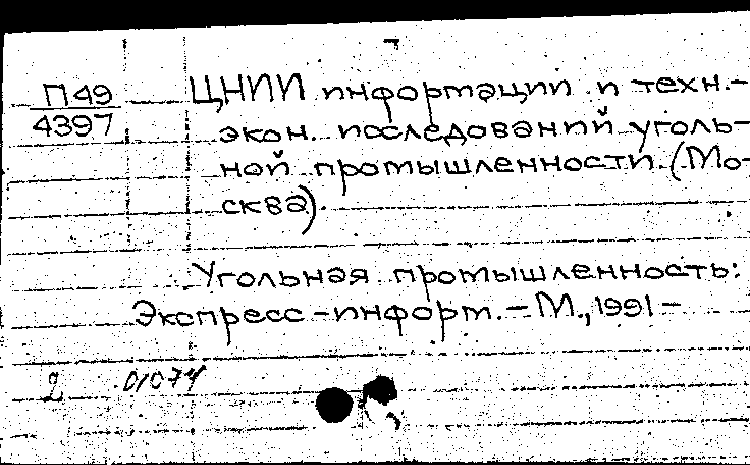 П49
4397
ЦНИИ информации и техн.-
экон. исследований уголь-
ной промышленности. (Мо-
сква).
Угольная промышленность:
Экспресс-информ. - М., 1991 -
2 01074